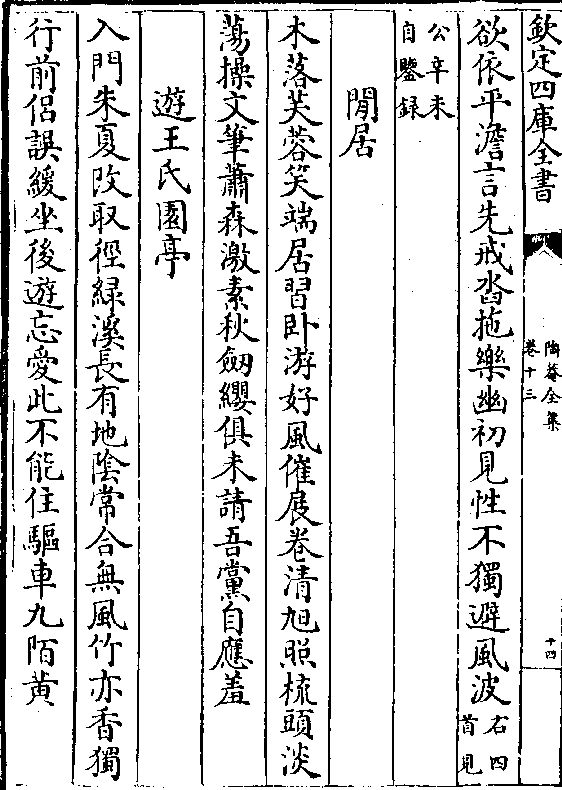 欽定四庫全書
陶菴全集
卷十三
十四
欲依平澹言先戒沓拖樂幽初見性不獨避風波右四
首見
公辛未
自鑒録
閒居
木落芙蓉笑端居習卧游好風催展卷清旭照梳頭淡
蕩操文筆蕭森激素秋劒纓俱未請吾黨自應羞
遊王氏園亭
入門朱夏改取徑緑溪長有地陰常合無風竹亦香獨
行前侣誤緩坐後遊忘愛此不能住驅車九陌黄